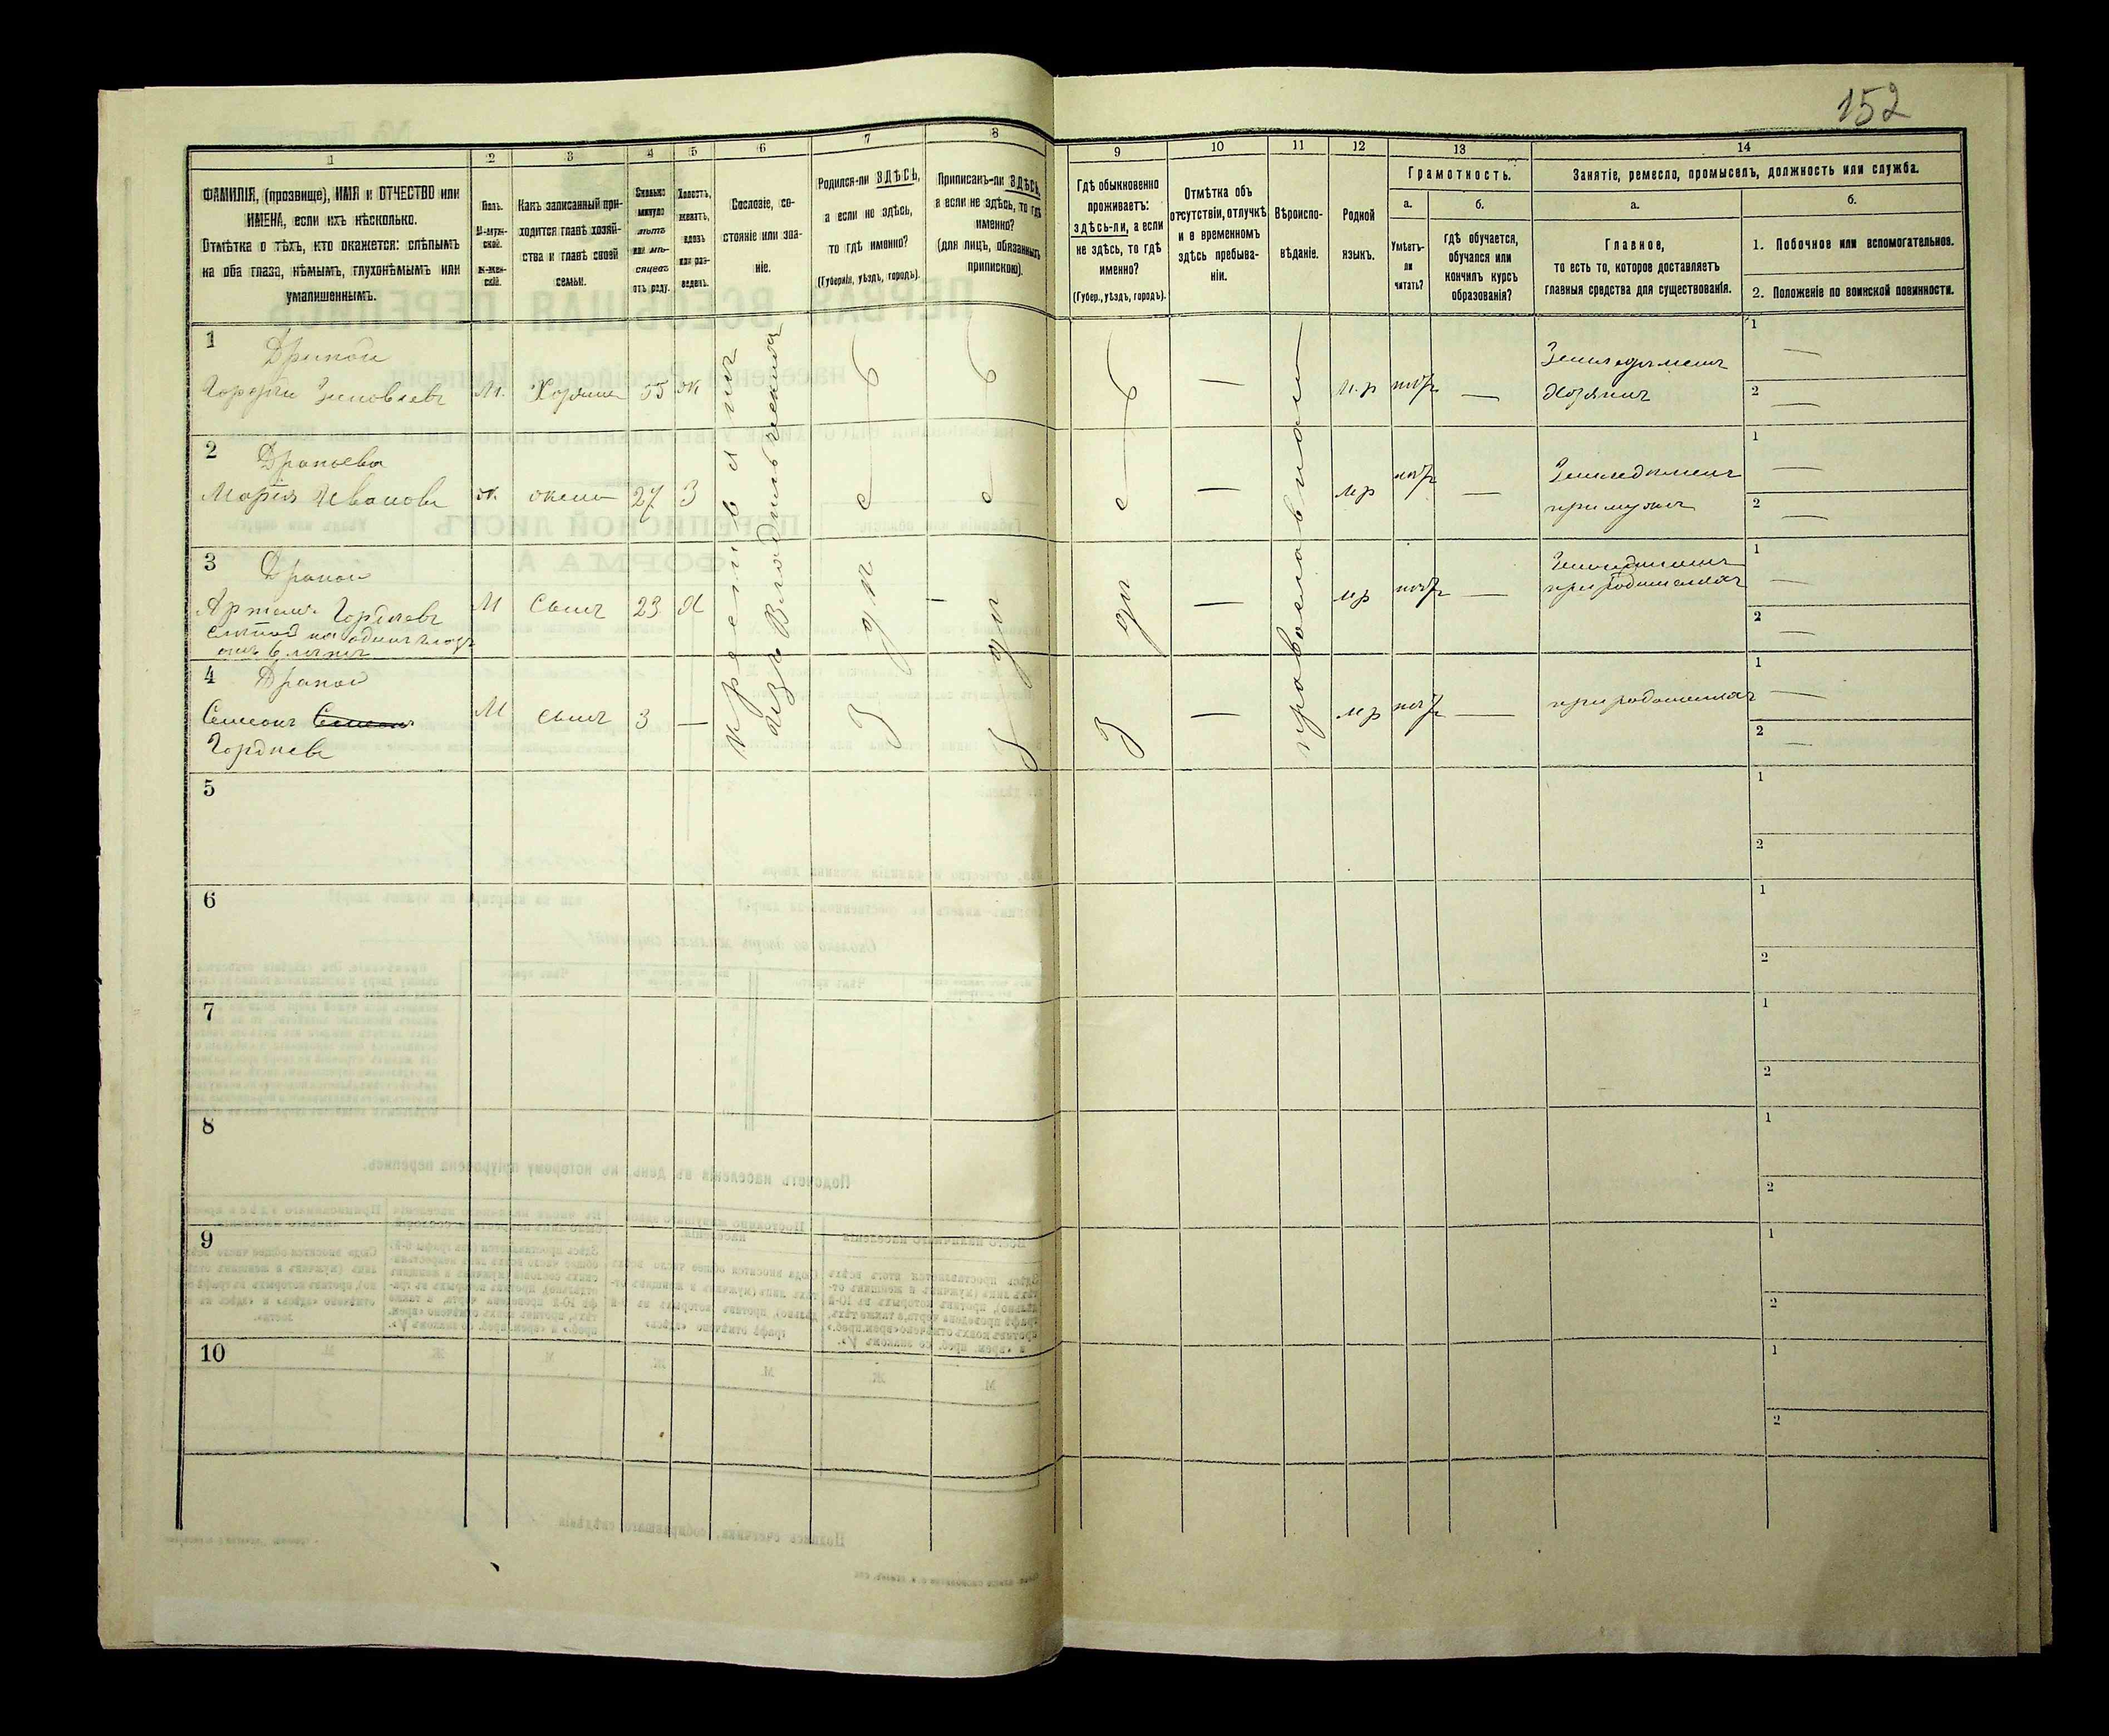 152
1
2
3
4
5
6
7
8
ФАМИЛІЯ, (прозвище), ИМЯ и ОТЧЕСТВО или
ИМЕНА, если ихъ нѣсколько.
Отмѣтка о тѣхъ, кто окажется: слѣпымъ
на оба глаза, нѣмымъ, глухонѣмымъ или
умалишеннымъ.
Полъ.
М-муж-
ской.
Ж-жен-
скій.
Какъ записанный при-
ходится главѣ хозяй-
ства и главѣ своей
семьи.
Сколько
минуло
лѣтъ
или мѣ-
сяцевъ
отъ роду.
Холостъ,
женатъ,
вдовъ
или раз-
веденъ.
Сословіе, со-
стояніе или зва-
ніе.
Родился-ли ЗДѢСЬ,
а если не здѣсь,
то гдѣ именно?
(Губернія, уѣздъ, городъ).
Приписанъ-ли ЗДѢСЬ,
а если не здѣсь, то гдѣ
именно?
(для лицъ, обязанныхъ
припискою).
9
10
11
12
13
14
Гдѣ обыкновенно
проживаетъ:
здѣсь-ли, а если
не здѣсь, то гдѣ
именно?
(Губер., уѣздъ, городъ).
Отмѣтка объ
отсутствіи, отлучкѣ
и о временномъ
здѣсь пребыва-
ніи.
Вѣроиспо-
вѣданіе.
Родной
языкъ.
Грамотность.
а.
Умѣетъ-
ли
читать?
б.
Гдѣ обучается,
обучался или
кончилъ курсъ
образованія?
Занятіе, ремесло, промыселъ, должность или служба.
а.
Главное,
то есть то, которое доставляетъ
главныя средства для существованія.
б.
1. Побочное или вспомогательное.
2. Положеніе по воинской повинности.
1
Гордѣй Зиновьевъ
М.
Хозяинъ
55
ж
крестьянинъ
изъ
м.р
Земледѣлецъ
хозяинъ
1
2
2
Драпоева
Марія Иванова
ж.
жена
27
З
м р
Земледѣлецъ
при мужѣ
1
2
3
Драпой
Артемъ Гордѣевъ
слѣпой на одинъ глазъ
М
сынъ
23
Х
м р
Земледѣлецъ
при родителяхъ
1
2
4
Драпой
Семенъ
Гордѣевъ
М
сынъ
3
м р
при родителяхъ
1
2
здѣсь
здѣсь
здѣсь
православной
5
1
2
6
1
2
7
1
2
8
1
2
9
1
2
10
1
2